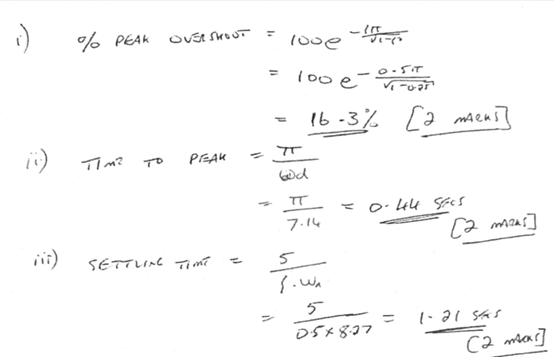 i) % PEAK OVERSHOOT = 100e^(-ζπ/√(1-ζ²))
= 100e^(-0.5π/√(1-0.25))
= 16.3% [2 MARKS]
ii) TIME TO PEAK = π/ωd
= π/7.14 = 0.44 SECS
[2 MARKS]
iii) SETTLING TIME = 5/ζ.ωn
= 5/0.5×8.27 = 1.21 SECS
[2 MARKS]